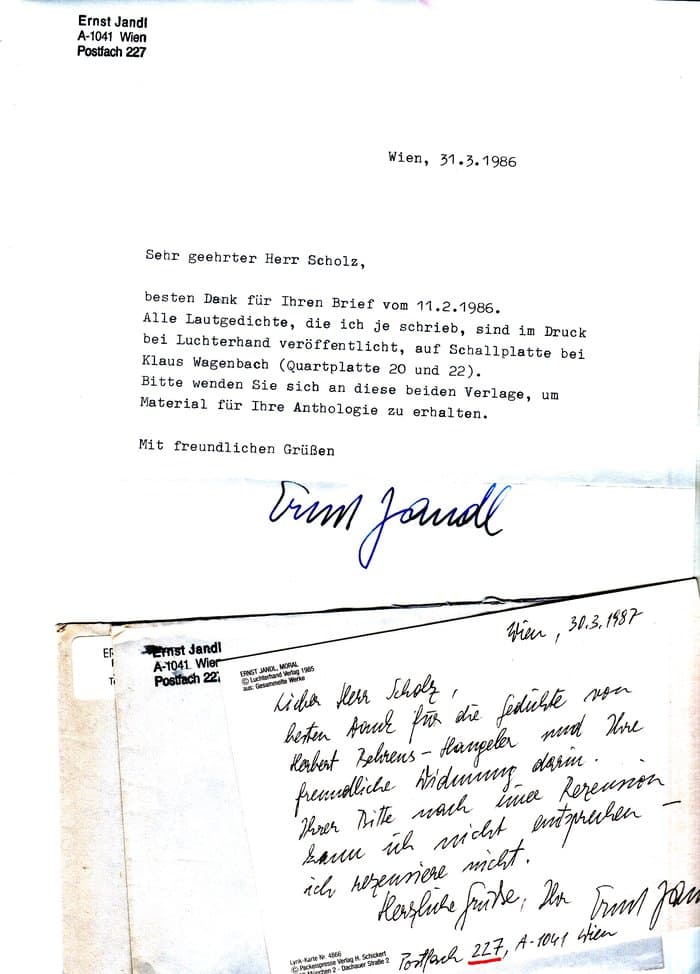 Ernst Jandl
A-1041 Wien
Postfach 227
Wien, 31.3.1986
Sehr geehrter Herr Scholz,
besten Dank für Ihren Brief vom 11.2.1986.
Alle Lautgedichte, die ich je schrieb, sind im Druck
bei Luchterhand veröffentlicht, auf Schallplatte bei
Klaus Wagenbach (Quartplatte 20 und 22).
Bitte wenden Sie sich an diese beiden Verlage, um
Material für Ihre Anthologie zu erhalten.
Mit freundlichen Grüßen
Ernst Jandl
Ernst Jandl
A-1041 Wien
Postfach 227
ERNST JANDL, MORAL
© Luchterhand Verlag 1985
aus: Gesammelte Werke
Wien, 30.3.1987
Lieber Herr Scholz,
besten Dank für die Gedichte von
Herbert Behrens-Hangeler und Ihre
freundliche Widmung darin.
Ihrer Bitte nach einer Rezension
kann ich nicht entsprechen –
ich rezensiere nicht.
Herzliche Grüße, Ihr Ernst Jan
Postfach 227, A-1041 Wien
Lyrik-Karte Nr. 4866
© Packenpresse Verlag H. Schickert
München 2 - Dachauer Straße 2